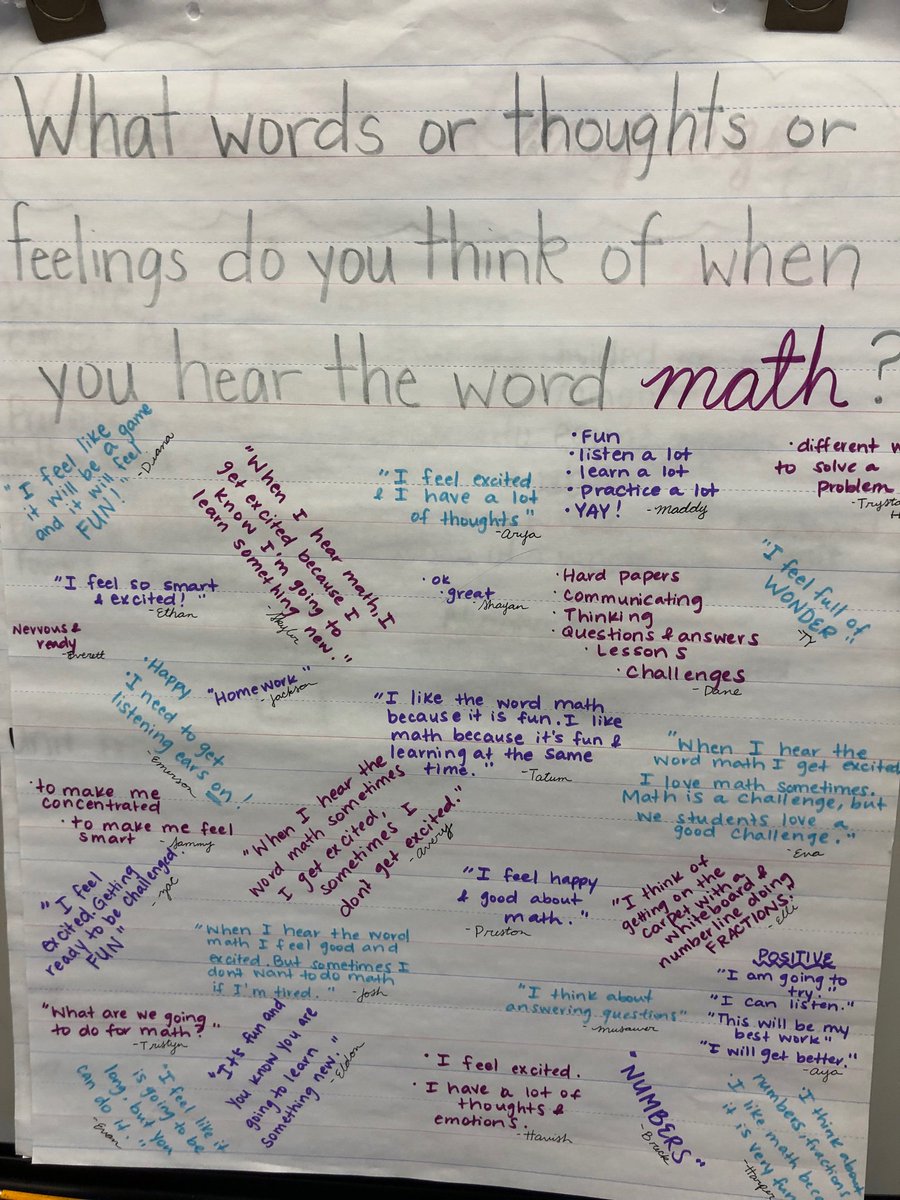 What words or thoughts or
feelings do you think of when
you hear the word math?
"I feel like
it will be a game
and it will feel
FUN!"
-Diana
"When I hear math, I
get excited because I
know I'm going to
learn something new."
-Skylar
"I feel excited
& I have a lot
of thoughts"
-Arya
• Fun
• listen a lot
• learn a lot
• practice a lot
• YAY!
-Maddy
• different
to solve a
problem
"I feel so smart
& excited!"
-Ethan
• ok
• great
-Shayan
• Hard papers
• Communicating
• Thinking
• Questions & answers
• Lessons
• Challenges
-Dane
"I feel full of
WONDER"
-TY
Nervous &
ready
-Everett
• Happy
• I need to get
listening ears on!
-Emerson
"Homework"
-Jackson
"I like the word math
because it is fun. I like
math because it's fun &
learning at the same
time."
-Tatum
"When I hear the
word math I get excited
I love math sometimes.
Math is a challenge, but
we students love a
good challenge."
-Eva
• to make me
concentrated
• to make me feel
smart
-Sammy
"When I hear the
word math sometimes
I get excited,
sometimes I
don't get excited."
-Avery
"I feel
excited. Getting
ready to be challenged.
FUN"
-Zac
"I feel happy
& good about
math."
-Preston
"I think of
getting on the
carpet with a
whiteboard &
numberline doing
FRACTIONS."
-Elli
"When I hear the word
math I feel good and
excited. But sometimes I
dont want to do math
if I'm tired."
-Josh
"I think about
answering questions"
-Musawer
POSITIVE
"I am going to
try."
"I can listen."
"This will be my
best work"
"I will get better."
-Aya
"What are we going
to do for math?"
-Tristyn
"It's fun and
You know you are
going to learn
something new."
-Eldon
"I feel like it
is going to be
long, but you
can do it."
-Evan
• I feel excited.
• I have a lot of
thoughts &
emotions.
-Havish
"NUMBERS"
-Brock
• I think about
numbers, fraction
• I like math
it is very fun
-Harper